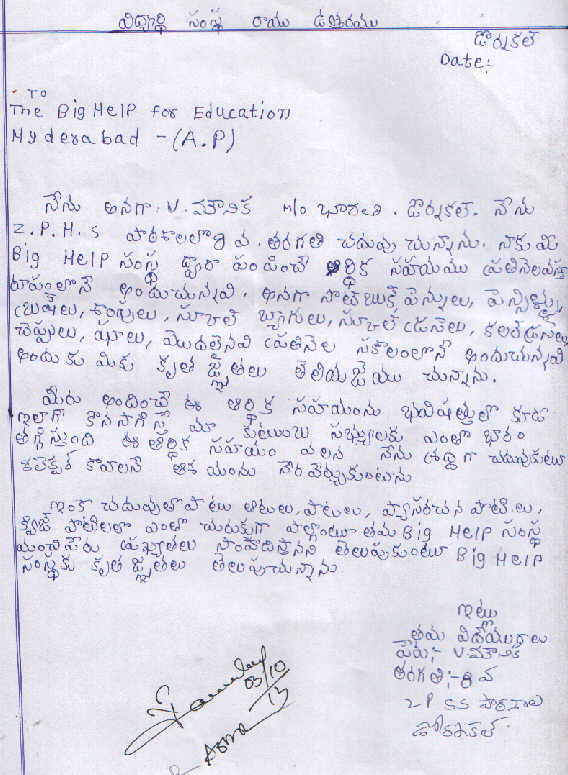 విద్యార్థి సంస్థ రాయు ఉత్తరము
డోర్నకల్
Date:
To
The Big Help for Education
Hyderabad - (A.P)
నేను అనగా. V. మౌనిక M/o భారతి. డోర్నకల్. నేను
Z.P.H.S పాఠశాలలో 8 వ. తరగతి చదువు చున్నాను. నాకు మీ
Big Help సంస్థ ద్వారా పంపించే ఆర్థిక సహాయము ప్రతినెల వస్తు
రూపంలోనే అందుచున్నవి. అనగా నోట్‌బుక్స్ పెన్నులు, పెన్సిళ్ళు,
బ్రుష్‌లు, శాంపులు, స్కూల్ బ్యాగులు, స్కూల్ డ్రస్‌లు, కలర్‌డ్రస్‌లు,
చెప్పులు, షూలు, మొదలైనవి ప్రతినెల సకాలంలోనే అందుచున్నవి
అందుకు మీకు కృతజ్ఞతలు తెలియజేయు చున్నాను.
మీరు అందించే ఈ ఆర్థిక సహాయంను భవిష్యత్తులో కూడా
ఇలాగే కొనసాగిస్తే మా కుటుంబ సభ్యులకు ఎంతో భారం
తగ్గిస్తుంది ఈ ఆర్థిక సహాయం వలన నేను శ్రద్ధగా చదువుకుంటూ
కలెక్టర్ కావాలనే ఆశయంను నెరవేర్చుకుంటును
ఇంకా చదువుతోపాటు ఆటలు, పాటలు, వ్యాసరచన పోటీలు,
క్విజ్ పోటీలలో ఎంతో చురుకుగా పాల్గొంటూ తమ Big Help సంస్థ
మంచిపేరు ప్రఖ్యాతలు సాంపాదిస్తానని తెలుపుకుంటూ Big HELP
సంస్థకు కృతజ్ఞతలు తెలుపుచున్నాను
ఇట్లు
తమ విదేయురాలు
పేరు:- V మౌనిక
తరగతి:- 8 వ
Z P SS పాఠశాల
డోర్నకల్
03/10
13